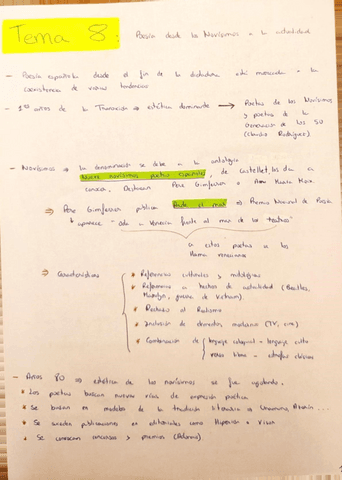 Tema 8: Poesía desde los Novísimos a la actualidad
- Poesía española desde el fin de la dictadura está marcada x la
coexistencia de varias tendencias
- 1os años de la Transición → estética dominante → Poetas de los Novísimos
y poetas de la
Generación de los 50
(Claudio Rodríguez)
- Novísimos → la denominación se debe a la antología
Nueve novísimos poetas españoles, de Castellet, los da a
conocer. Destacan Pere Gimferrer o Ana María Moix.
⇒ Pere Gimferrer publica Arde el mar ⇒ Premio Nacional de Poesía
↳ aparece "Oda a Venecia frente al mar de los teatros"
a estos poetas se les
llama venecianos
⇒ Características
* Referencias culturales y mitológicas
* Referencias a hechos de actualidad (Beatles,
Marilyn, guerra de Vietnam).
* Rechazo al Realismo
* Inclusión de elementos modernos (TV, cine)
* Combinación de lenguaje coloquial - lenguaje culto
verso libre - estrofas clásicas
- Años 80 ⇒ estética de los novísimos se fue agotando.
* Los poetas buscan nuevas vías de expresión poética
* Se buscan modelos de la tradición literaria ⇒ Unamuno, Azorín...
* Se suceden publicaciones en editoriales como Hiperión o Visor
* Se convocan concursos y premios (Adonais)